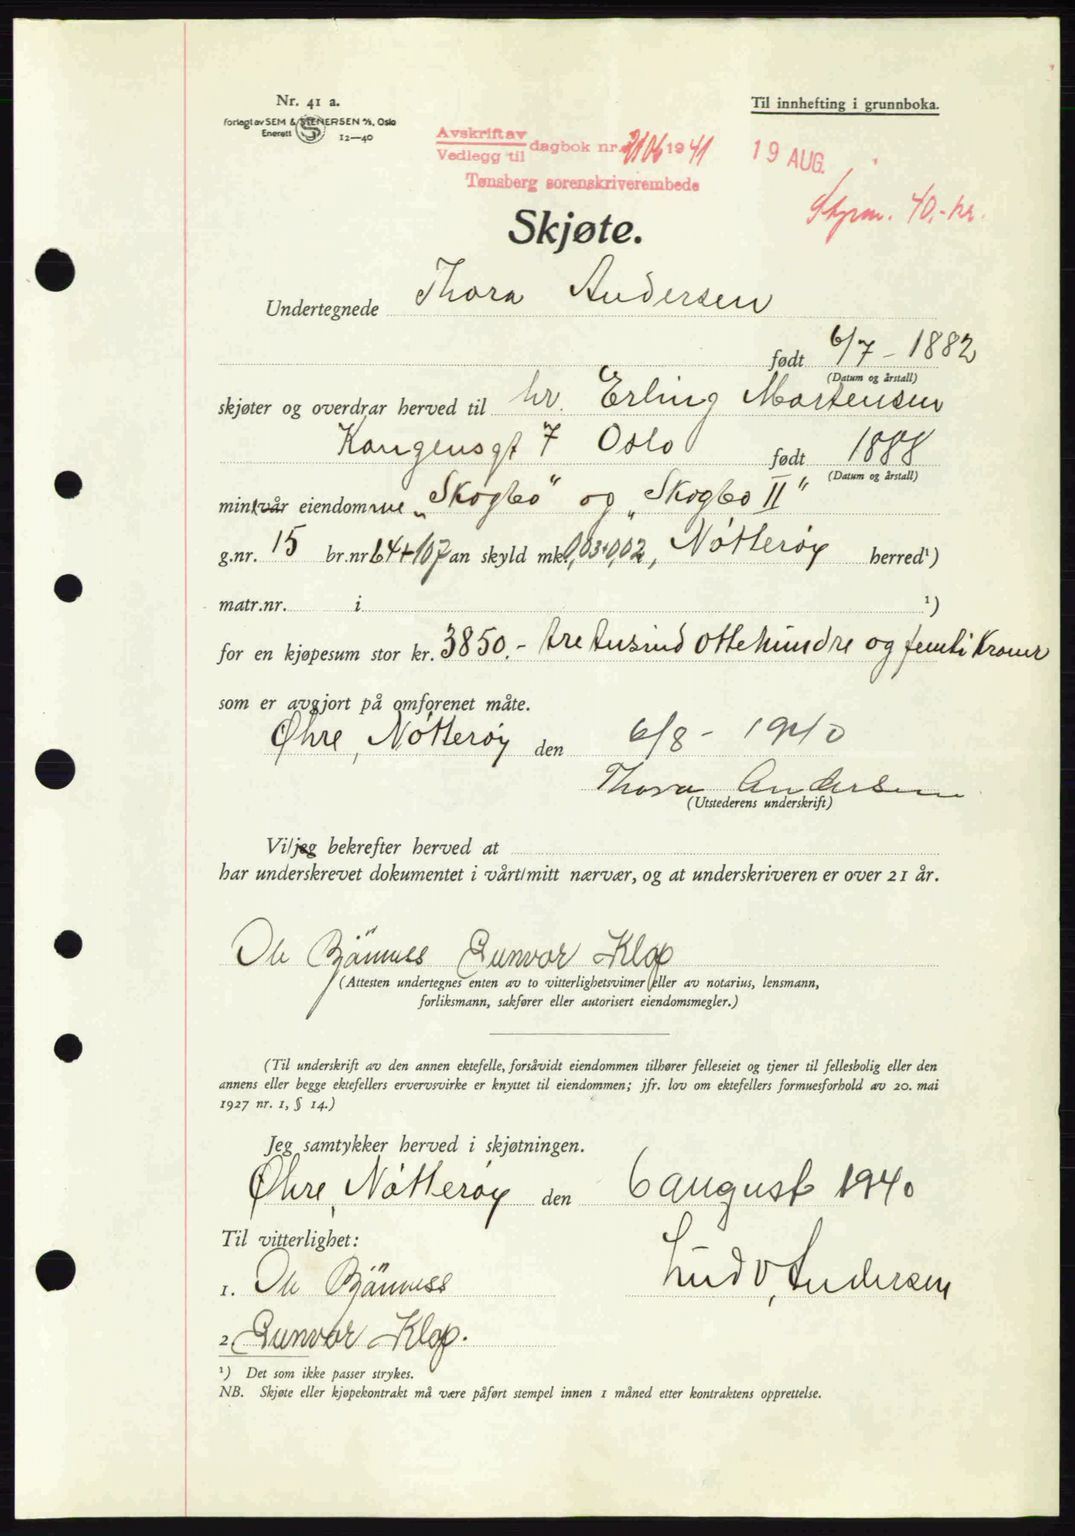 Nr. 41 a.
Forlagt av SEM & STENERSEN A/S, Oslo
Enerett S 12—40
Til innhefting i grunnboka.
Avskrift av
Vedlegg til dagbok nr. 2106 1941
Tønsberg sorenskriverembede
19 AUG.
40.- kr.
Skjøte.
Undertegnede Thora Andersen
født 6/7 - 1882
(Datum og årstall)
skjøter og overdrar herved til hr. Erling Mortensen
Kongensgt 7 Oslo født 1888
(Datum og årstall)
min/vår eiendommene „Skogbo" og „Skogbo II"
g.nr. 15 br.nr 64+107 an skyld mk. 0,03+0,02, Nøtterøy herred¹)
matr.nr. i ¹)
for en kjøpesum stor kr. 3850.- tre tusind ottehundre og femti Kroner
som er avgjort på omforenet måte.
Øhre, Nøtterøy den 6/8 - 1940
Thora Andersen
(Utstederens underskrift)
Vi/jeg bekrefter herved at
har underskrevet dokumentet i vårt/mitt nærvær, og at underskriveren er over 21 år.
Gunvor Klop
(Attesten undertegnes enten av to vitterlighetsvitner eller av notarius, lensmann,
forliksmann, sakfører eller autorisert eiendomsmegler.)
(Til underskrift av den annen ektefelle, forsåvidt eiendommen tilhører felleseiet og tjener til fellesbolig eller den
annens eller begge ektefellers ervervsvirke er knyttet til eiendommen; jfr. lov om ektefellers formuesforhold av 20. mai
1927 nr. 1, § 14.)
Jeg samtykker herved i skjøtningen.
Øhre, Nøtterøy den 6 august 1940
Til vitterlighet:
Ludv. Andersen
1.
2. Gunvor Klop.
¹) Det som ikke passer strykes.
NB. Skjøte eller kjøpekontrakt må være påført stempel innen 1 måned etter kontraktens opprettelse.